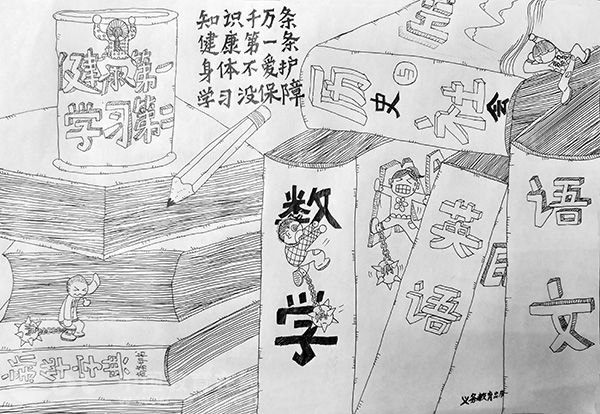 知识千万条
健康第一条
身体不爱护
学习没保障
健康第一
学习第二
历史与社会
数学
英语
语文